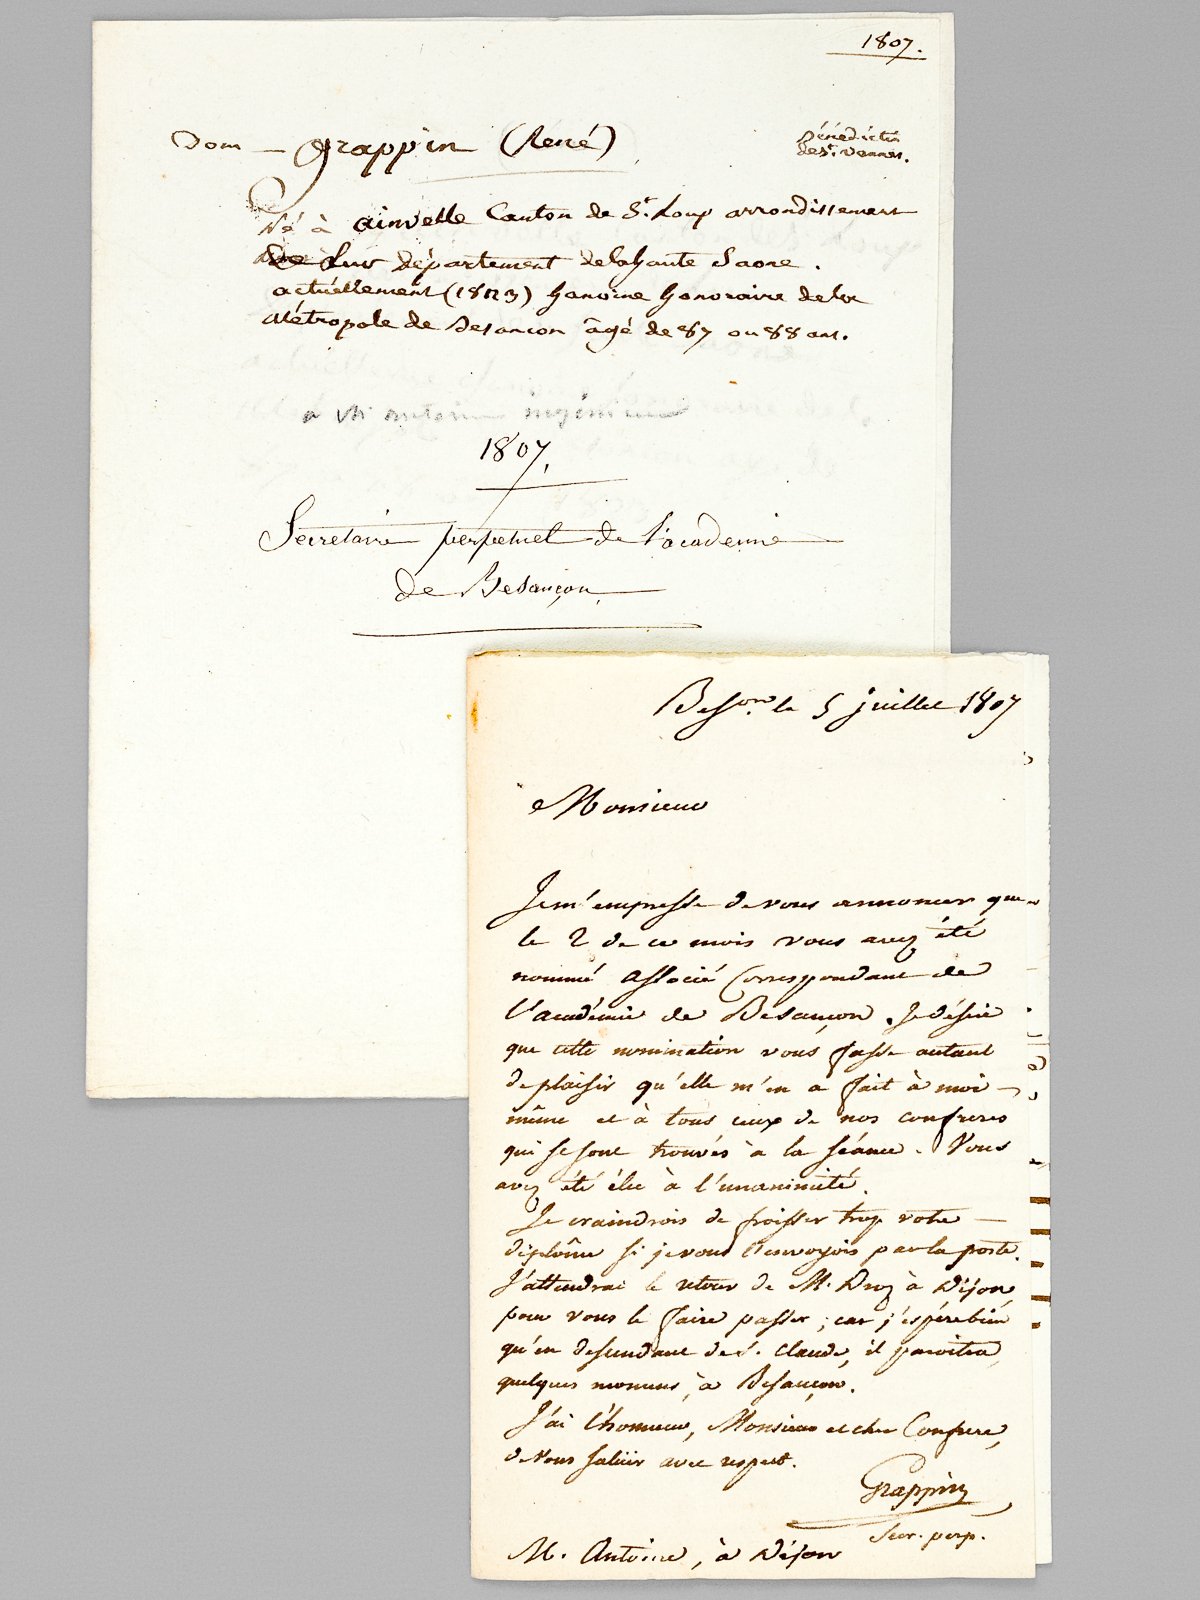 1807.
Dom — grappin (René)
Bénédictin
de St. Vannes.
Né à ainvelle Canton de St. Loup arrondissement
de Lur département de la haute Saone.
actuellement (1823) hanoine honoraire de la
Métropole de Besancon âgé de 87 ou 88 ans.
à Mr antoine ingénieur
1807.
Secretaire perpetuel de l'academie
de Besançon.
Beson. le 5 juillet 1807
Monsieur
Je m'empresse de vous annoncer que
le 2 de ce mois vous avez été
nommé associé Correspondant de
l'académie de Besançon. Je désire
que cette nomination vous fasse autant
de plaisir qu'elle m'en a fait à moi
même et à tous ceux de nos confreres
qui se sont trouvés à la séance. Vous
avez été élu à l'unanimité.
Je craindrois de froisser trop votre
diplôme si je vous l'envoyois par la poste.
J'attendrai le retour de M. Droz à Dijon
pour vous le faire passer; car j'espére bien
qu'en descendant de S. Claude, il paroitra
quelques momens à Besançon.
J'ai l'honneur, Monsieur et cher Confrere,
de vous salüer avec respect.
Grappin
Secr. perp.
M. Antoine, à Dijon